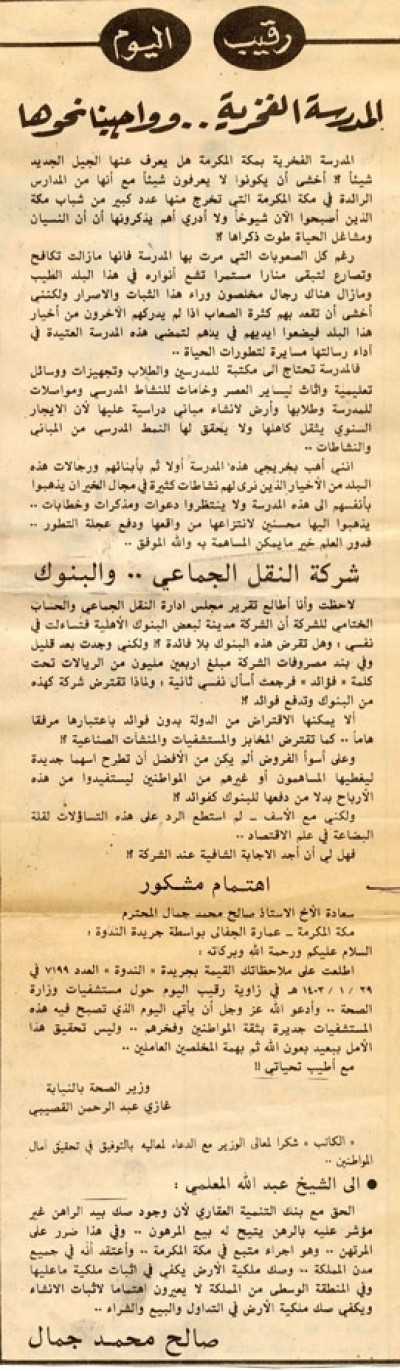 رقيب اليوم
المدرسة الفخرية .. وواجبنا نحوها
المدرسة الفخرية بمكة المكرمة هل يعرف عنها الجيل الجديد
شيئاً ؟! أخشى أن يكونوا لا يعرفون شيئاً مع أنها من المدارس
الرائدة في مكة المكرمة التي تخرج منها عدد كبير من شباب مكة
الذين أصبحوا الآن شيوخاً ولا أدري أهم يذكرونها أن أن النسيان
ومشاغل الحياة طوت ذكراها ؟!
رغم كل الصعوبات التي مرت بها المدرسة فانها مازالت تكافح
وتصارع لتبقى منارا مستمرا تشع أنواره في هذا البلد الطيب
ومازال هناك رجال مخلصون وراء هذا الثبات والاصرار ولكنني
أخشى أن تقعد بهم كثرة الصعاب اذا لم يدركهم الآخرون من أخيار
هذا البلد فيضعوا ايديهم في يدهم لتمضي هذه المدرسة العتيدة في
أداء رسالتها مسايرة لتطورات الحياة ..
فالمدرسة تحتاج الى مكتبة للمدرسين والطلاب وتجهيزات ووسائل
تعليمية واثاث ليساير العصر وخامات للنشاط المدرسي ومواصلات
للمدرسة وطلابها وأرض لانشاء مباني دراسية عليها لأن الايجار
السنوي يثقل كاهلها ولا يحقق لها النمط المدرسي من المباني
والنشاطات ..
انني أهب بخريجي هذه المدرسة أولا ثم بأبنائهم ورجالات هذه
البلد من الأخيار الذين نرى لهم نشاطات كثيرة في مجال الخير ان يذهبوا
بأنفسهم الى هذه المدرسة ولا ينتظروا دعوات ومذكرات وخطابات ..
يذهبوا اليها محسنين لانتزاعها من واقعها ودفع عجلة التطور ..
فدور العلم خير ما يمكن المساهمة به والله الموفق ..
شركة النقل الجماعي .. والبنوك
لاحظت وأنا أطالع تقرير مجلس ادارة النقل الجماعي والحساب
الختامي للشركة أن الشركة مدينة لبعض البنوك الأهلية فتساءلت في
نفسي : وهل تقرض هذه البنوك بلا فائدة ؟! ولكني وجدت بعد قليل
وفي بند مصروفات الشركة مبلغ اربعين مليون من الريالات تحت
كلمة « فؤائد » فرجعت أسأل نفسي ثانية : ولماذا تقترض شركة كهذه
من البنوك وتدفع فوائد ؟!
ألا يمكنها الاقتراض من الدولة بدون فوائد باعتبارها مرفقا
هاماً .. كما تقترض المخابز والمستشفيات والمنشآت الصناعية ؟!
وعلى أسوأ الفروض ألم يكن من الأفضل أن تطرح اسهما جديدة
ليغطيها المساهمون أو غيرهم من المواطنين ليستفيدوا من هذه
الأرباح بدلا من دفعها للبنوك كفوائد ؟!
ولكني مع الأسف ــ لم استطع الرد على هذه التساؤلات لقلة
البضاعة في علم الاقتصاد ..
فهل لي أن أجد الاجابة الشافية عند الشركة ؟!
اهتمام مشكور
سعادة الأخ الاستاذ صالح محمد جمال المحترم
مكة المكرمة ــ عمارة الجفالى بواسطة جريدة الندوة :
السلام عليكم ورحمة الله وبركاته :
اطلعت على ملاحظاتك القيمة بجريدة « الندوة » العدد ٧١٩٩ في
٢٩ / ١ / ١٤٠٣ هـ في زاوية رقيب اليوم حول مستشفيات وزارة
الصحة .. وأدعو الله عز وجل أن يأتي اليوم الذي تصبح فيه هذه
المستشفيات جديرة بثقة المواطنين وفخرهم .. وليس تحقيق هذا
الأمل ببعيد بعون الله ثم بهمة المخلصين العاملين ..
مع أطيب تحياتي !!
وزير الصحة بالنيابة
غازي عبد الرحمن القصيبي
« الكاتب » شكرا لمعالى الوزير مع الدعاء لمعاليه بالتوفيق في تحقيق آمال
المواطنين ..
● الى الشيخ عبد الله المعلمي :
الحق مع بنك التنمية العقاري لأن وجود صك بيد الراهن غير
مؤشر عليه بالرهن يتيح له بيع المرهون .. وفي هذا ضرر على
المرتهن .. وهو اجراء متبع في مكة المكرمة .. وأعتقد أنه في جميع
مدن المملكة .. وصك ملكية الأرض يكفي في اثبات ملكية ماعليها
وفي المنطقة الوسطى من المملكة لا يعيرون اهتماما لاثبات الانشاء
ويكفي صك ملكية الأرض في التداول والبيع والشراء ..
صالح محمد جمال